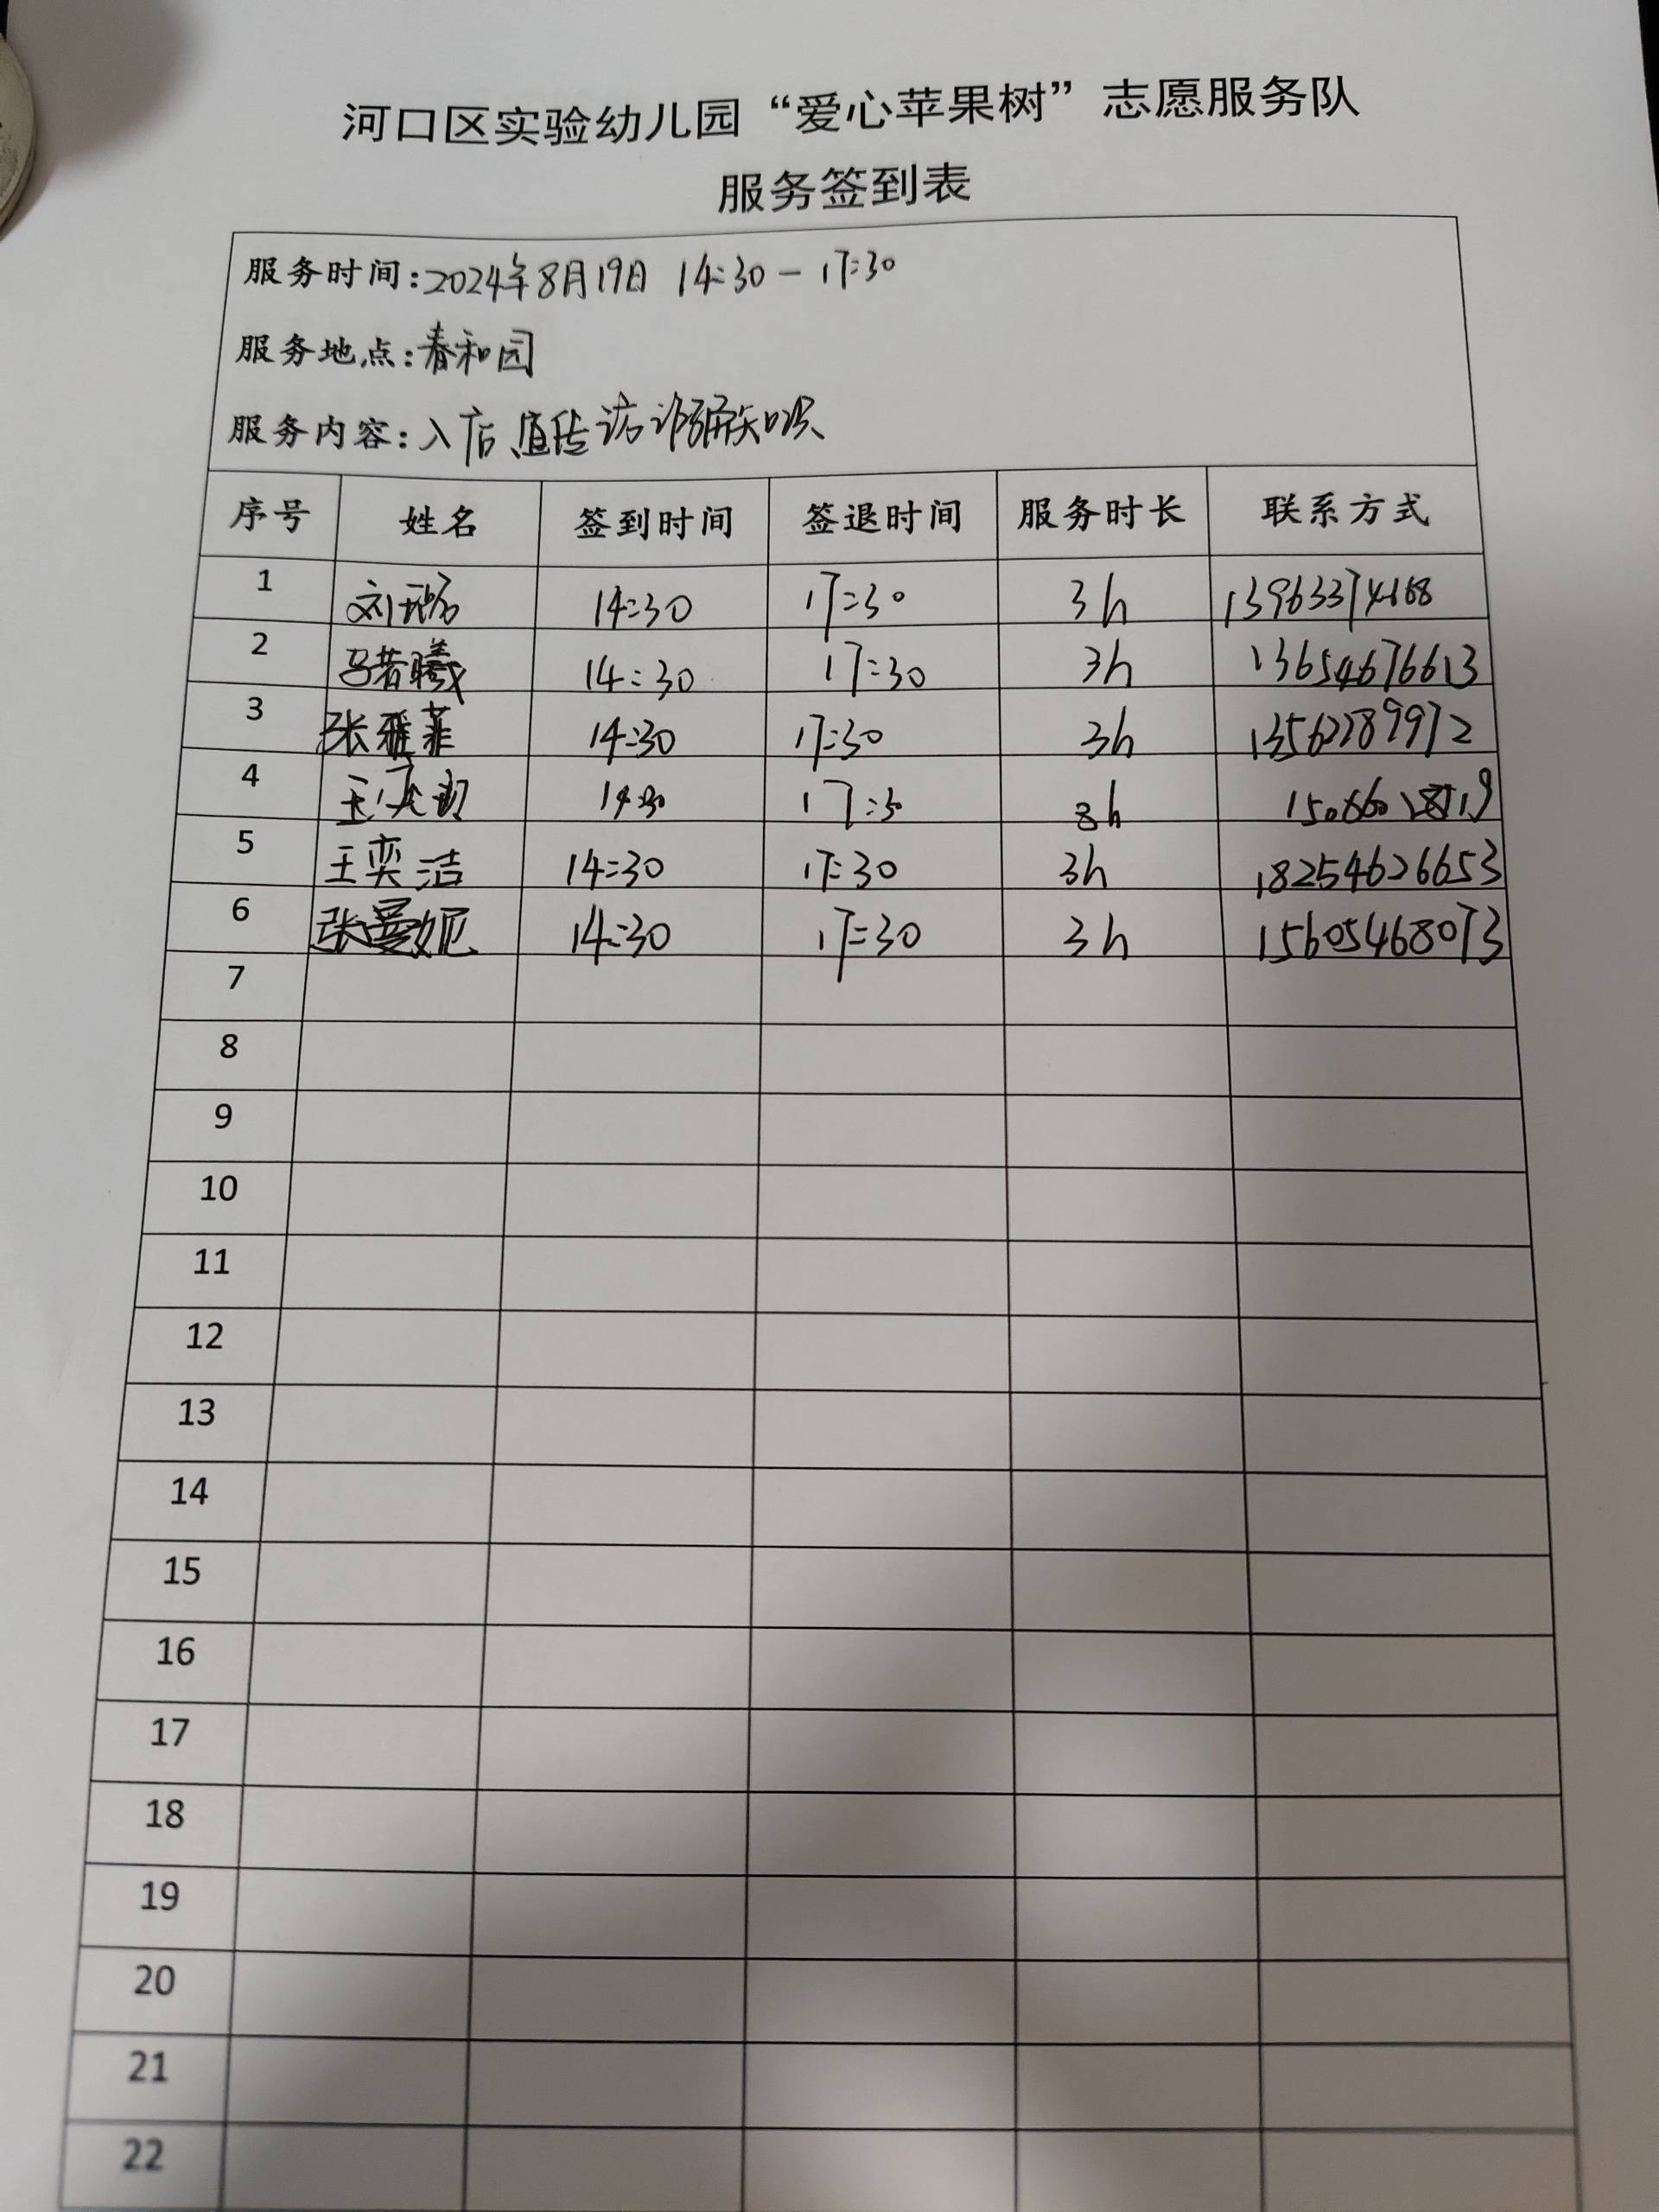 河口区实验幼儿园“爱心苹果树”志愿服务队
服务签到表
服务时间:2024年8月19日 14:30-17:30
服务地点:春和园
服务内容:入店宣传防诈骗知识
序号 姓名 签到时间 签退时间 服务时长 联系方式
1 刘 14:30 17:30 3h
2 马若曦 14:30 17:30 3h 13654676613
3 张雅菲 14:30 17:30 3h 13562289972
4 王 14:30 17:30 3h
5 王奕洁 14:30 17:30 3h 18254626653
6 张曼妮 14:30 17:30 3h 15605468073
7
8
9
10
11
12
13
14
15
16
17
18
19
20
21
22